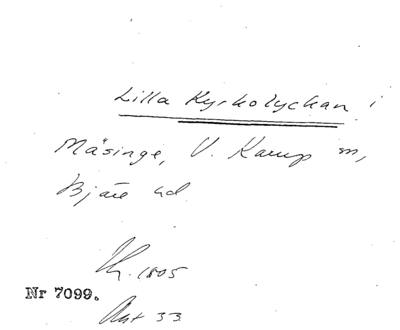 Lilla Kyrkolyckan i
Mäsinge, V. Karup sn,
Bjäre hd
1805
Nr 7099.
Akt 33